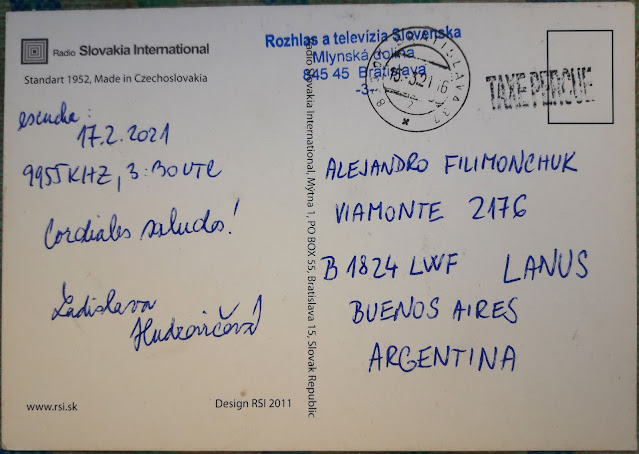 Radio Slovakia International
Standart 1952, Made in Czechoslovakia
escucha:
17.2.2021
9955 KHZ, 3:30 UTC
Cordiales saludos!
Ladislava
Hudzovičová
www.rsi.sk
Design RSI 2011
Radio Slovakia International, Mýtna 1, PO BOX 55, Bratislava 15, Slovak Republic
Rozhlas a televízia Slovenska
Mlynská dolina
845 45 Bratislava
-3-
BRATISLAVA 37
TAXE PERCUE
ALEJANDRO FILIMONCHUK
VIAMONTE 2176
B 1824 LWF LANUS
BUENOS AIRES
ARGENTINA